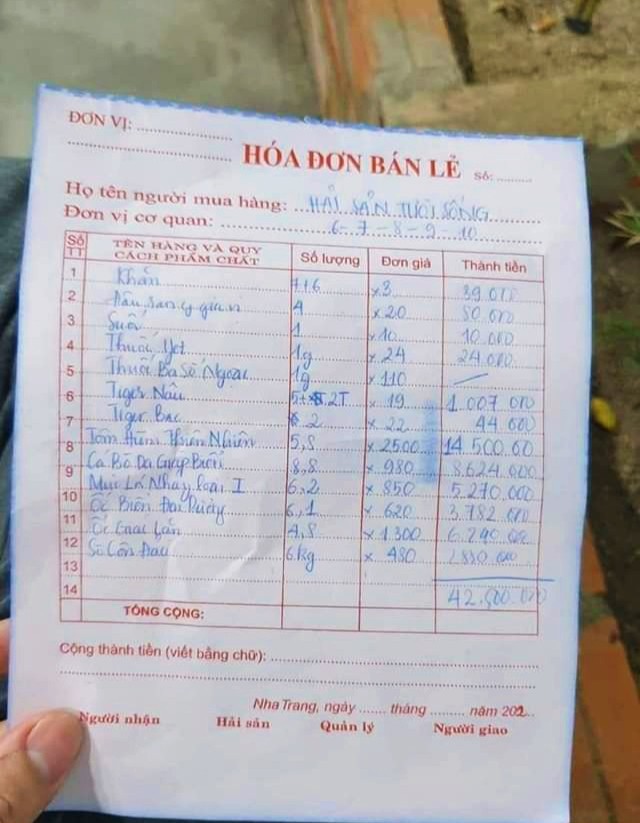 ĐƠN VỊ: ....................
....................
HÓA ĐƠN BÁN LẺ Số: ..........
Họ tên người mua hàng: HẢI SẢN TƯƠI SỐNG
Đơn vị cơ quan: 6-7-8-9-10
Số TT TÊN HÀNG VÀ QUY CÁCH PHẨM CHẤT Số lượng Đơn giá Thành tiền
1 Khăn 7+6 x3 39.000
2 4 x20 80.000
3 Suối 1 x10 10.000
4 Thuốc 1g x 24 24.000
5 Thuốc Ba Số Ngoại 1g x 110
6 Tiger Nâu 2T x 19 1.007 000
7 Tiger Bạc 2 x 22 44.000
8 Tôm Hùm Thiên Nhiên 5,8 x 2500 14.500.00
9 Cá Bò Da Giáp Biển 8,8 x 980 8.624.000
10 Mực Lá Nháy loại I 6,2 x 850 5.270.000
11 Ốc Biển 6,1 x 620 3.782.000
12 Ốc 4,8 x 1300 6.240 000
13 Sò Côn Đảo 6kg x 480 2880 000
14 42.500.000
TỔNG CỘNG:
Cộng thành tiền (viết bằng chữ): ....................
....................
Nha Trang, ngày ....... tháng ......... năm 202...
Người nhận Hải sản Quản lý Người giao